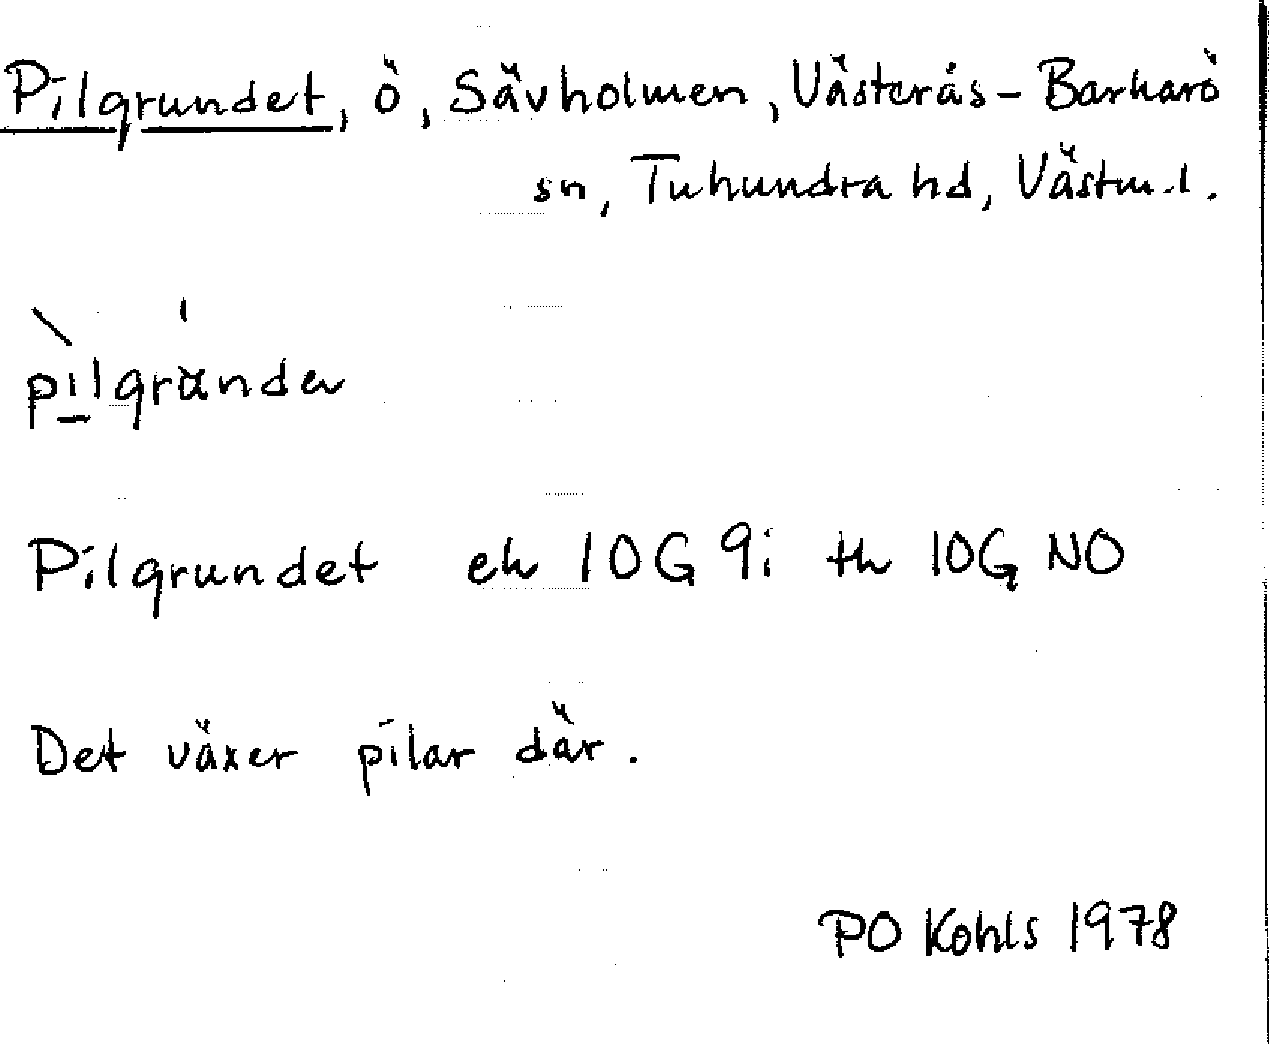 Pilgrundet, ö, Sävholmen, Västerås-Barkarö
sn, Tuhundra hd, Västm.l.
pi̲lgrända
Pilgrundet ek 10G 9i tk 10G NO
Det växer pilar där.
PO Kohls 1978